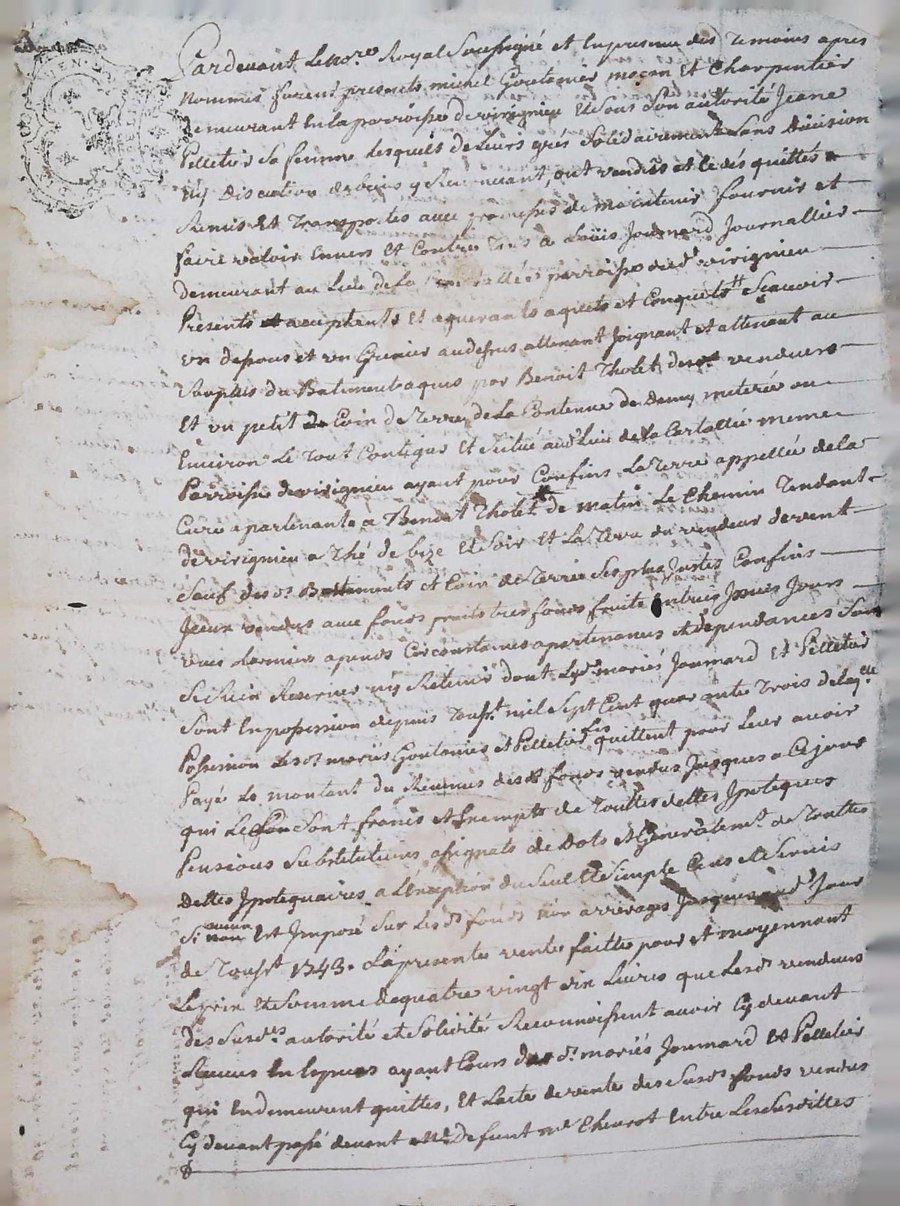 Pardevant Le no.re Royal Soussigné et En presence des Temoins apres
Nommés furent presents michel Goutanier maçon Et Charpentier
Demeurant En la parroisse de virignieu Et Sous Son autorité Jeane
Pelletier Sa femme Lesquels de Leurs grés Solidairement Sans Division
Ny Discution de biens y Renonceant, ont vendus et cédés quittés
Remis Et Transportés avec promesses de maintenir fournir et
faire valoir Envers Et Contre Tous a Loüis Joumard Journallier
demeurant au Lieu de La parroisse dud. virignieu
Presents et acceptents Et aquerants aquets et Conquets Sçavoir
un dessous et un Grenier audessus attenant Joignant et attenant au
Surplus du Batiment aquis par Benoit Tholet desd. vendeurs
Et un petit Coin de Terre de La Contenue de Demy meterée ou
Environ Le Tout Contigus Et Scitué aud. Lieu de la Cortallie meme
Parroisse de virignieu ayant pour Confins La Terre appellée de la
Cure apartenante a Benoit Tholet de matin Le Chemin Tendant
de virignieu a de bize Et Soir Et La Terre du vendeur de vent
Sauf desd. Batiments et Coin de Terre Ses plus Justes Confins
Jceux vendus avec fonds tres fonds fruits Entrées Jssues Jours
vües Larmiers apends Circonstances apartenances et dependances Sans
Se Rien Reserver ny Retenir dont Lesd. mariés Joumard Et Pelletier
Sont En possession depuis Toust. mil Sept Cent quarante Trois de Laq.elle
Possession Lesd. mariés Goutanier et Pelletier Les quittent pour Leur avoir
Payé Le montant du Revenus desd. fonds vendus Jusques a Ce jour
qui Sont francs et Exempts de Touttes dettes Jpoteques
Pensions Substitutions assignats de Dots et Generalem.t de Touttes
Dettes Jpotequaires a L'Exeption du Seul Et Simple Cens Et Servis
Si aucun Est Jmposé Sur Lesd. fonds arrerages Jusques aud. Jour
de Toust. 1743. La presente vente faitte pour et moyennant
Le prix Et Somme de quatre vingt dix Livres que Lesd. vendeurs
des Susd.es autorité et Solidité Reconnoissent avoir Cy devant
Receus En Especes ayant Cours desd. mariés Joumard Et Pelletier
qui En demeurent quittes, Et L'acte de vente des Susd. fonds vendus
Cy devant passé devant Defunt m.e Chevrot Entre Les